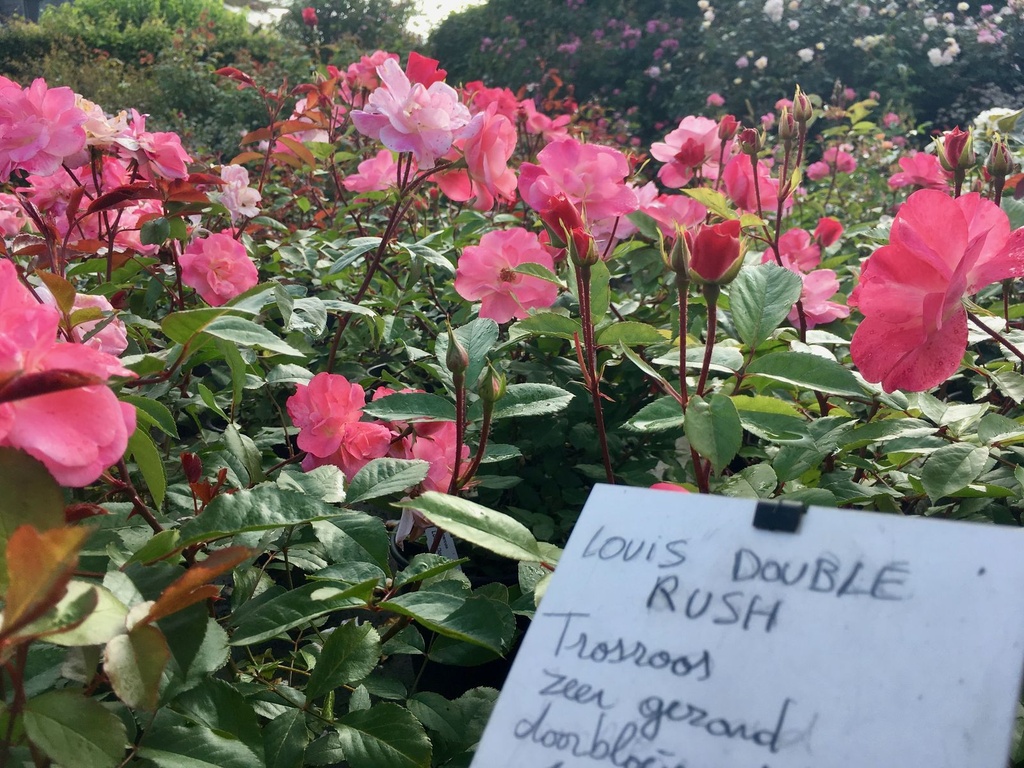 LOUIS DOUBLE
RUSH
Trosroos
zeer gezond